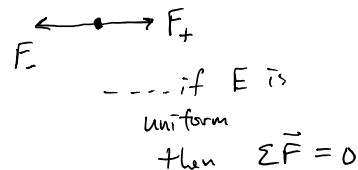 F₋ F₊
----if E is
uniform
then ΣF⃗ = 0